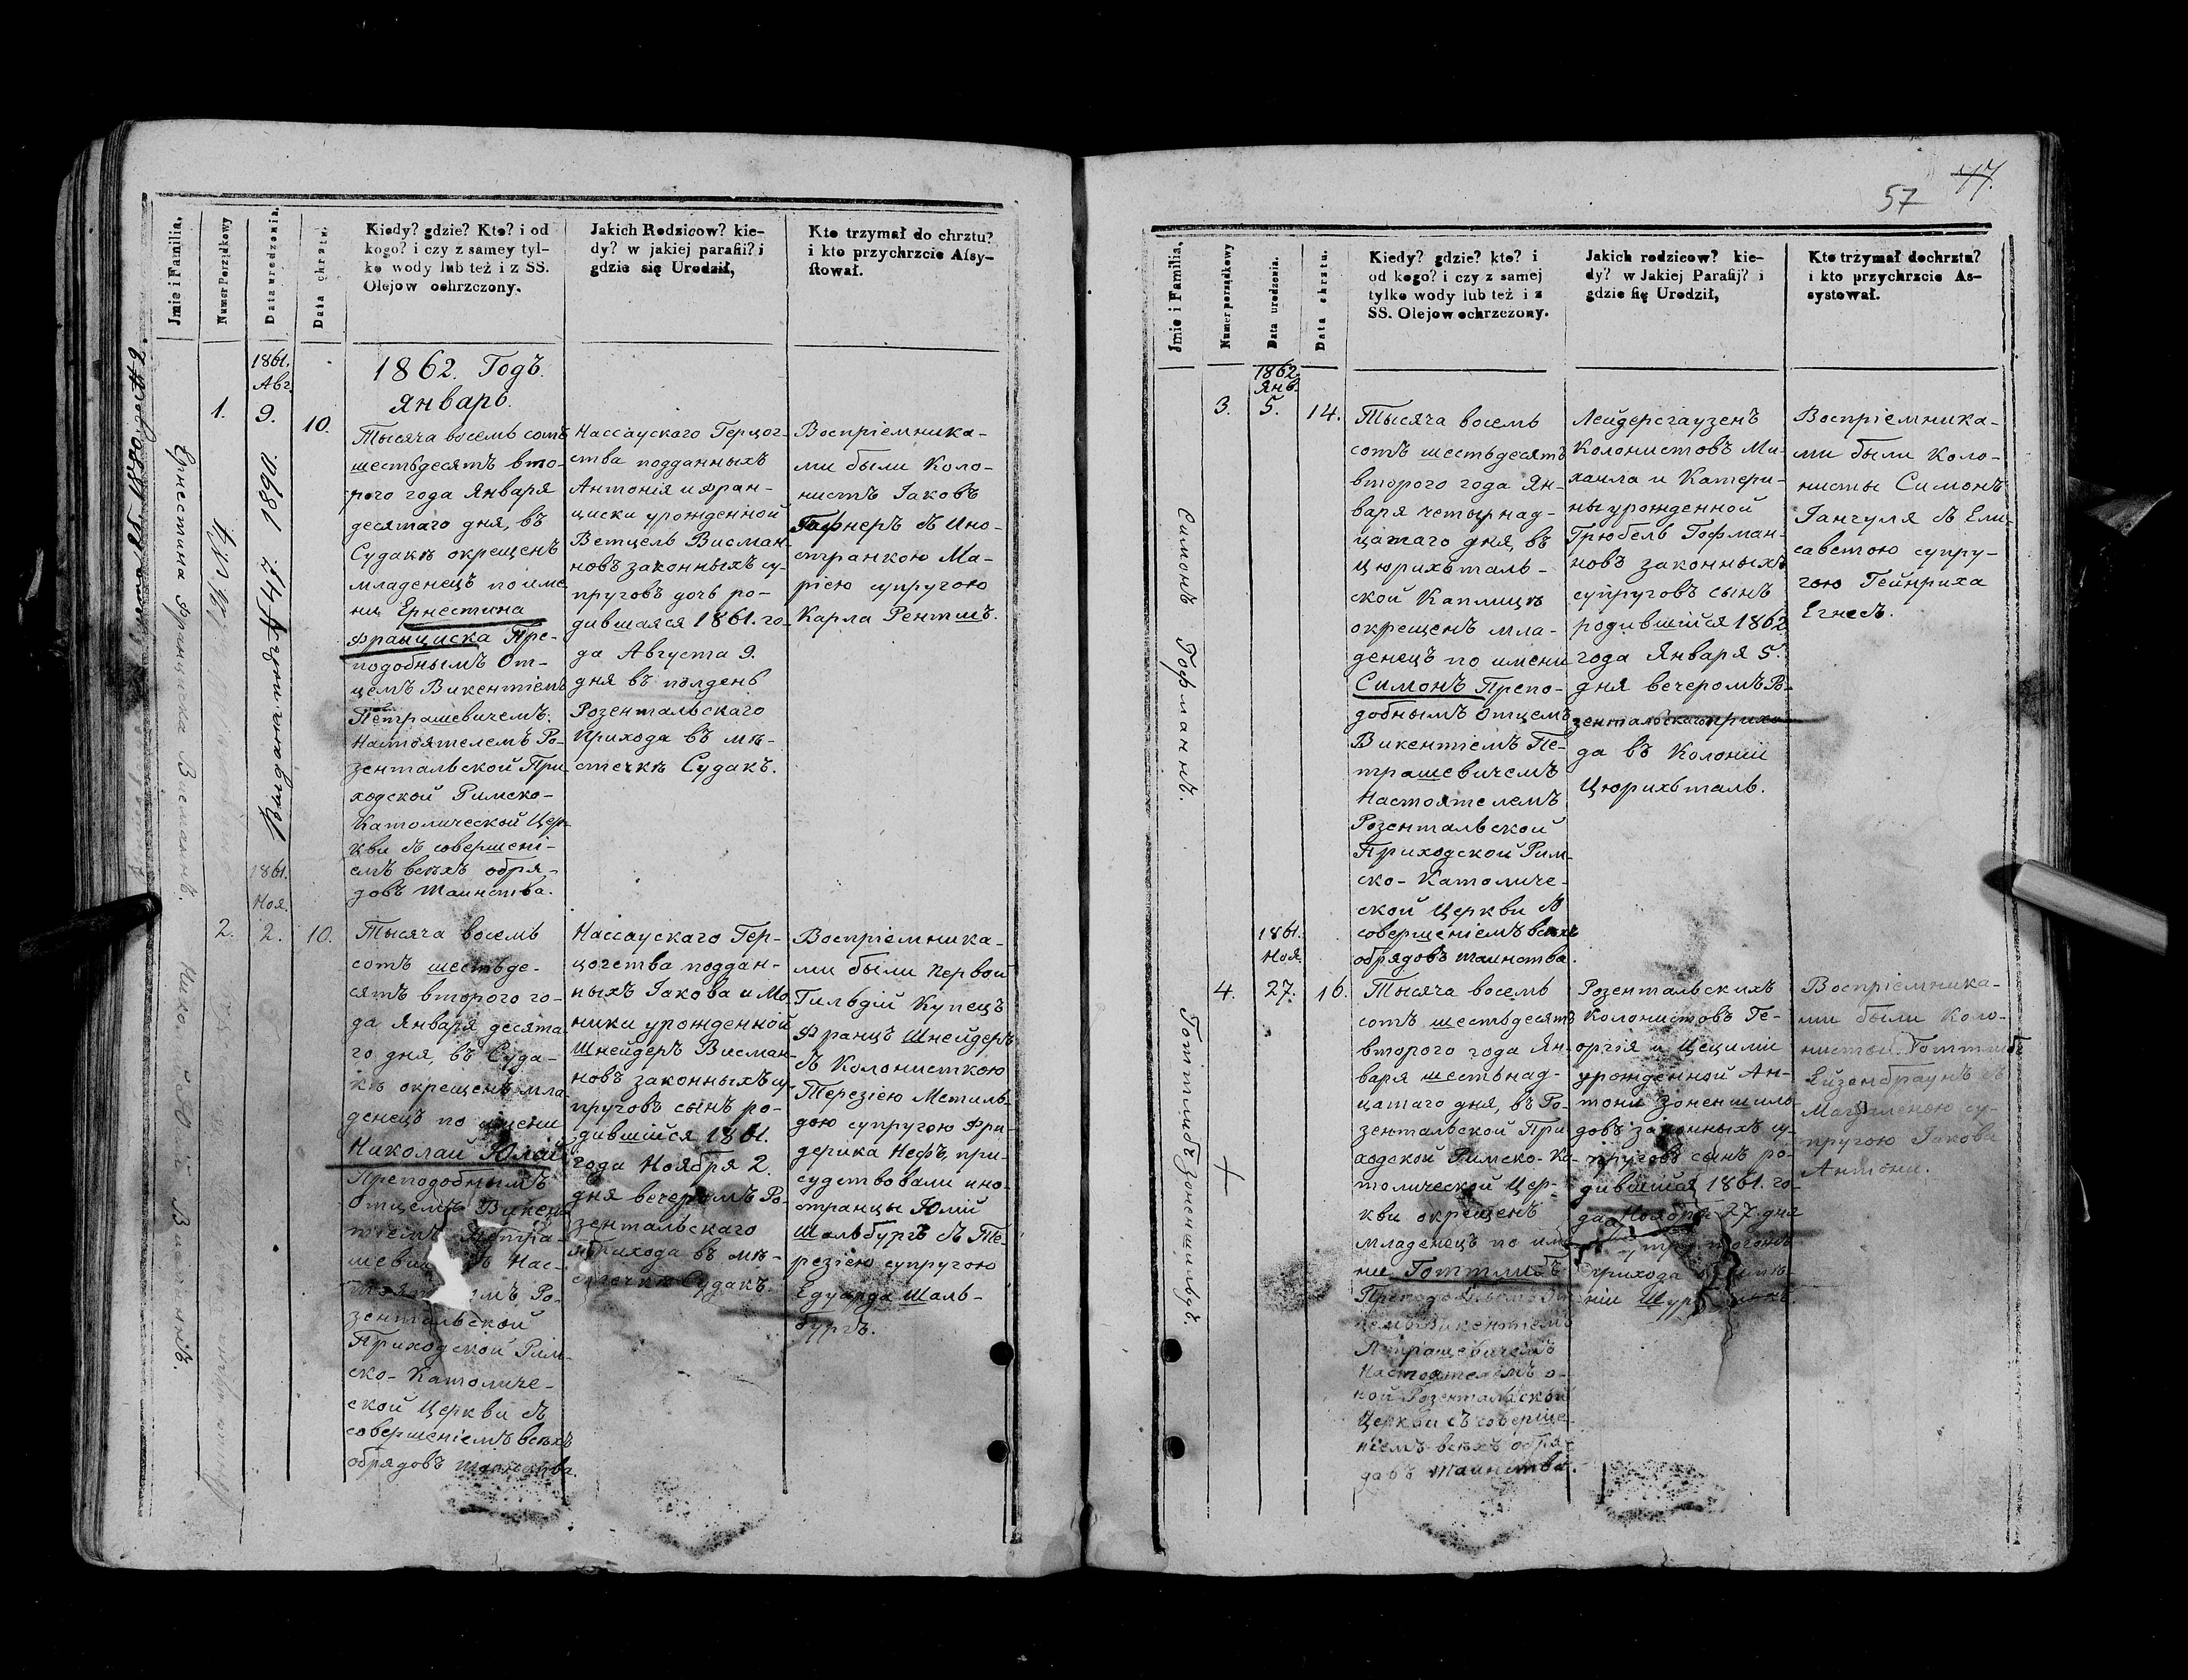 57 47.
Jmie i Familia.
Numer Porządkowy
Data urodzenia.
Data chrztu.
Kiedy? gdzie? Kto? i od
kogo? i czy z samey tyl-
ko wody lub też i z SS.
Olejow ochrzczony.
Jakich Rodzicow? kie-
dy? w jakiej parafii? i
gdzie się Urodził,
Kto trzymał do chrztu?
i kto przychrzcie Afsy-
ftował.
Ернестина Франциска Висманъ.
1.
1861.
Авг.
9.
10.
Выдана подъ № 47 1890.
1862. Годъ.
Январь.
Тысяча восемь сотъ
шестьдесятъ вто-
рого года Января
десятаго дня, въ
Судакѣ окрещенъ
младенецъ по име-
ни Ернестина
Франциска Пре-
подобнымъ От-
цемъ Викентіемъ
Петрашевичемъ.
Настоятелемъ Ро-
зентальской При-
ходской Римско-
Католической Цер-
кви съ совершені-
емъ всѣхъ обря-
довъ таинства.
Нассаускаго Герцог-
ства подданныхъ
Антонія и Фран-
циски урожденной
Ветцель Висман-
новъ законныхъ су-
пруговъ дочь ро-
дившаяся 1861. го-
да Августа 9.
дня въ полдень
Розентальскаго
Прихода въ мѣ-
стечкѣ Судакъ.
Воспріемника-
ми были Коло-
нистъ Іаковъ
Гафнеръ съ Ино-
странкою Ма-
ріею супругою
Карла Рентшъ.
Николай Юлій Висманнъ.
2.
1861.
Ноя.
2.
10.
Тысяча восемь
сотъ шестьде-
сятъ второго го-
да Января десята-
го дня, въ Суда-
кѣ окрещенъ мла-
денецъ по имени
Николай Юлій
Преподобнымъ
Отцемъ Викен-
тіемъ Петра-
шевич ъ Нас-
тоят емъ Ро-
зентальской
Приходской Рим-
ско-Католиче-
ской Церкви съ
совершеніемъ всѣхъ
обрядовъ таинства.
Нассаускаго Гер-
цогства поддан-
ныхъ Іакова и Мо-
ники урожденной
Шнейдеръ Висман-
новъ законныхъ су-
пруговъ сынъ ро-
дившійся 1861.
года Ноября 2.
дня вечеромъ Ро-
зентальскаго
Прихода въ мѣ-
стечкѣ Судакъ.
Воспріемника-
ми были первой
Гильдіи Купецъ
Францъ Шнейдеръ
съ Колонисткою
Терезіею Метиль-
дою супругою Фри-
дерика Нефъ, при-
судствовали ино-
странцы Юлій
Шальбургъ съ Те-
резіею супругою
Едуарда Шаль-
бургъ.
Jmie i Familia.
Numer porządkowy
Data urodzenia.
Data chrztu.
Kiedy? gdzie? kto? i
od kogo? i czy z samej
tylko wody lub też i z
SS. Olejow ochrzczony.
Jakich rodzicow? kie-
dy? w Jakiej Parafij? i
gdzie fię Urodził,
Kto trżymał dochrztu?
i kto przychrzcie As-
systował.
Симонъ Гофманнъ.
3.
1862.
Янв.
5.
14.
Тысяча восемь
сотъ шестьдесятъ
второго года Ян-
варя четырнад-
цатаго дня, въ
Цюрихталь-
ской Каплицѣ
окрещенъ мла-
денецъ по имени
Симонъ Препо-
добнымъ Отцемъ
Викентіемъ Пе-
трашевичемъ
Настоятелемъ
Розентальской
Приходской Рим-
ско-Католиче-
ской Церкви съ
совершеніемъ всѣхъ
обрядовъ таинства.
Лейдерсгаузенъ
Колонистовъ Ми-
хаила и Катери-
ны урожденной
Грюбель Гофман-
новъ законныхъ
супруговъ сынъ
родившійся 1862
года Января 5.
дня вечеромъ Ро-
зентальскаго прихо-
да въ Колоніи
Цюрихталь.
Воспріемника-
ми были Коло-
нисты Симонъ
Гангуля съ Ели-
саветою супру-
гою Гейнриха
Егнесъ.
Готтлибъ Зоненшильдъ.
4.
1861.
Ноя.
27.
16.
Тысяча восемь
сотъ шестьдесятъ
второго года Ян-
варя шестьнад-
цатаго дня, въ Ро-
зентальской При-
ходской Римско-Ка-
толической Цер-
кви окрещенъ
младенецъ по име-
ни Готтлибъ
Преподобнымъ От-
цемъ Викентіемъ
Петрашевичемъ
Настоятелемъ о-
ной Розентальской
Церкви съ соверше-
ніемъ всѣхъ обря-
довъ таинства.
Розентальскихъ
Колонистовъ Ге-
оргія и Цециліи
урожденной Ан-
тони Зоненшиль-
довъ законныхъ су-
пруговъ сынъ ро-
дившійся 1861. го-
да Ноября 27. дня
прихода
ніи
Воспріемника-
ми были Коло-
нисты Готтлибъ
Ейзенбраунъ съ
Магдаленою су-
пругою Іакова
Антони.